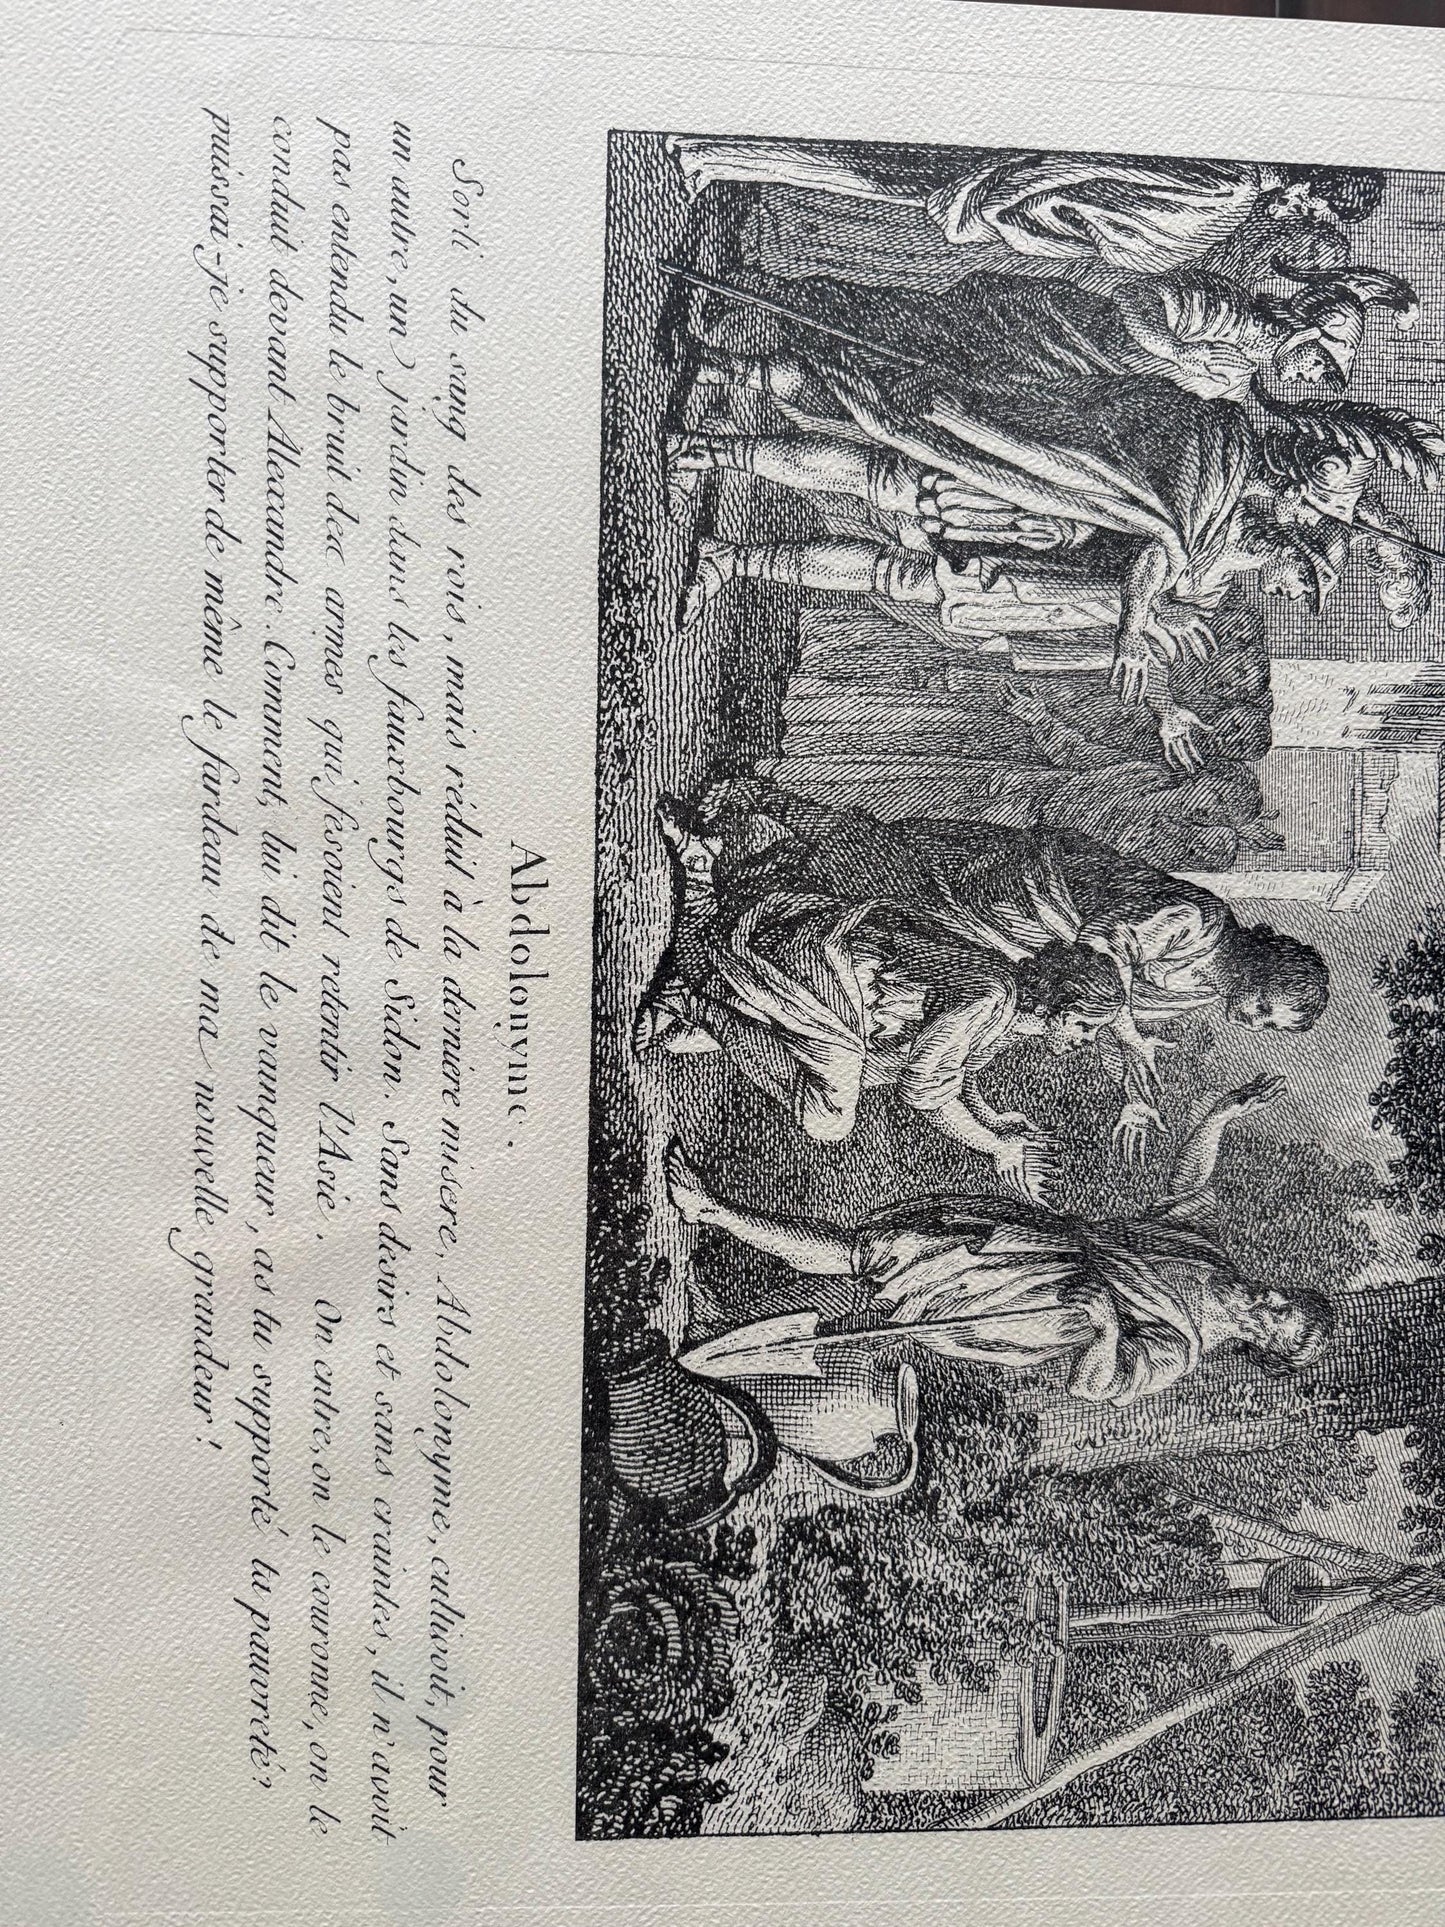 Abdolonyme.
Sorti du sang des rois, mais réduit à la derniere misere, Abdolonyme, cultivoit, pour
un autre, un jardin dans les fauxbourgs de Sidon. Sans desirs et sans craintes, il n'avoit
pas entendu le bruit des armes qui fesoient retentir l'Asie. On entre, on le couronne, on le
conduit devant Alexandre. Comment, lui dit le vainqueur, as tu supporté ta pauvreté?
puissai-je supporter de même le fardeau de ma nouvelle grandeur!